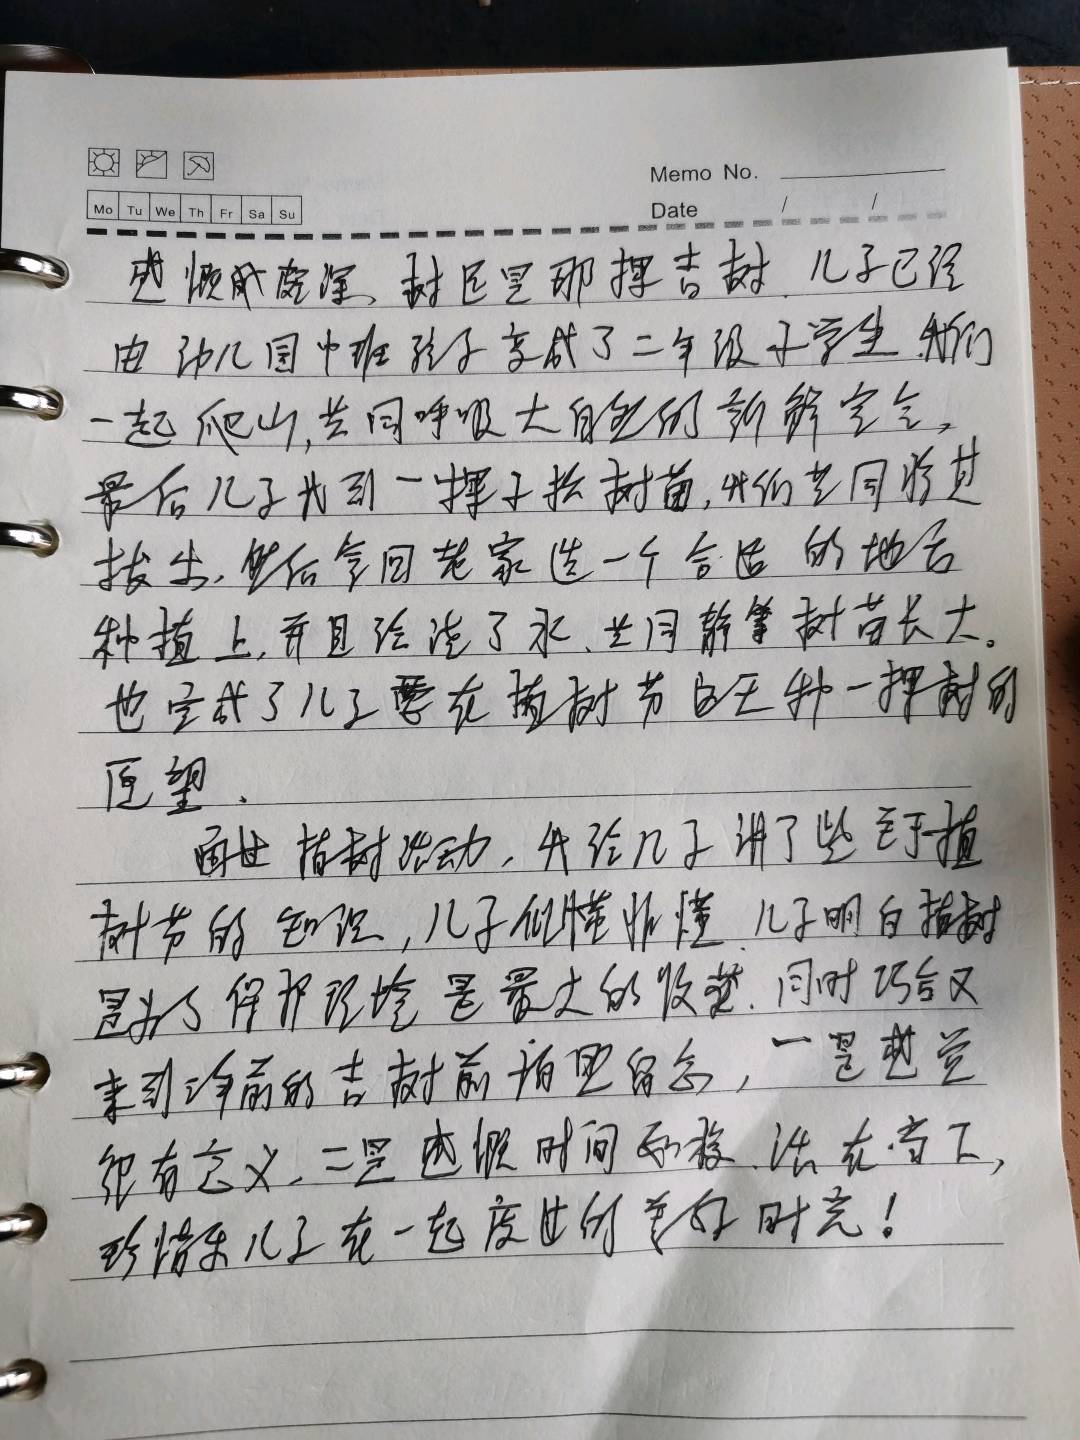 Memo No.
Mo Tu We Th Fr Sa Su
Date / /
感慨颇深、树还是那棵吉树、儿子已经
由幼儿园中班孩子变成了二年级小学生 我们
一起爬山,共同呼吸大自然的新鲜空气,
最后儿子找到一棵小松树苗,我们共同将其
拔出,然后拿回老家选一个合适的地方
种植上,并且给浇了水、共同静等树苗长大。
也完成了儿子要在植树节的这天种一棵树的
愿望、
通过植树活动,我给儿子讲了些关于植
树节的知识,儿子似懂非懂、儿子明白植树
是为了保护环境是最大的收获、同时巧合又
来到之前的吉树前拍照留念,一是感觉
很有意义、二是感慨时间的推移、活在当下,
珍惜和儿子在一起度过的美好时光!